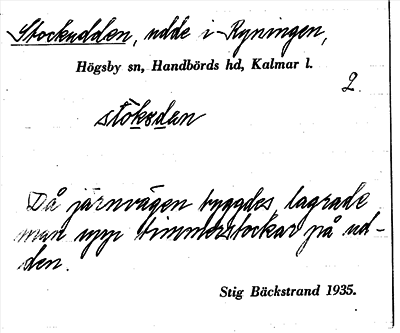 Stockudden, udde i Ryningen,
Högsby sn, Handbörds hd, Kalmar l.
2.
stòkųdęn
Då järnvägen byggdes lagrade
man upp timmerstockar på ud-
den.
Stig Bäckstrand 1935.